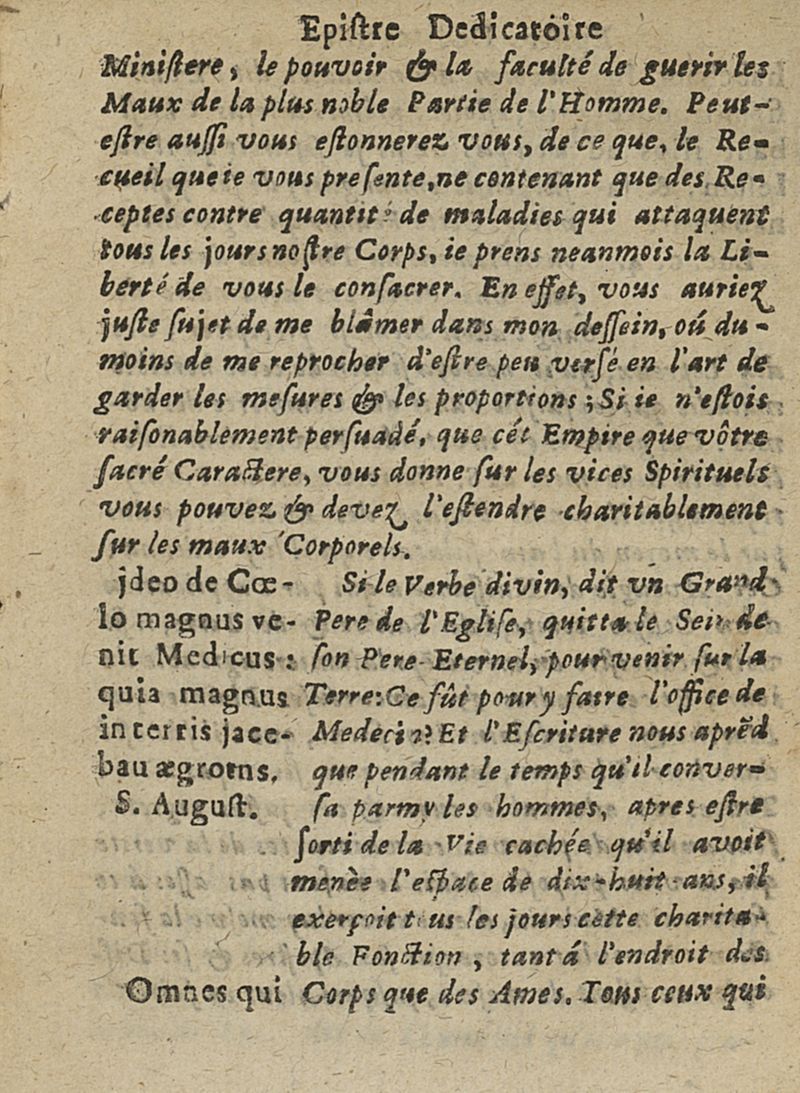 Epiſtre Dedicatoire
Miniſtere, le pouvoir & la faculté de guerir les
Maux de la plus noble Partie de l'Homme. Peut-
eſtre auſſi vous eſtonnerez vous, de ce que, le Re-
cueil que ie vous preſente, ne contenant que des Re-
ceptes contre quantité de maladies qui attaquent
tous les jours noſtre Corps, ie prens neanmois la Li-
berté de vous le conſacrer. En effet, vous auriez
juſte ſujet de me blâmer dans mon deſſein, oú du-
moins de me reprocher d'eſtre peu verſé en l'art de
garder les meſures & les proportions; Si ie n'eſtois
raiſonablement perſuadé, que cét Empire que vôtre
ſacré Caractere, vous donne ſur les vices Spirituels
vous pouvez & devez l'eſtendre charitablement
ſur les maux Corporels.
jdeo de Cœ-
lo magnus ve-
nit Medicus:
quia magnus
in terris jace-
bau ægrotns.
S. Auguſt.
Si le Verbe divin, dit vn Grand
Pere de l'Egliſe, quitta le Sein de
ſon Pere Eternel, pour venir ſur la
Terre: Ce fût pour y faire l'office de
Medecin? Et l'Eſcriture nous aprẽd
que pendant le temps qu'il conver-
ſa parmy les hommes, apres eſtre
ſorti de la Vie cachée qu'il avoit
menèe l'eſpace de dix-huit ans, il
exerçoit tous les jours cette charita-
ble Fonction, tant á l'endroit des
Corps que des Ames. Tous ceux qui
Omnes qui